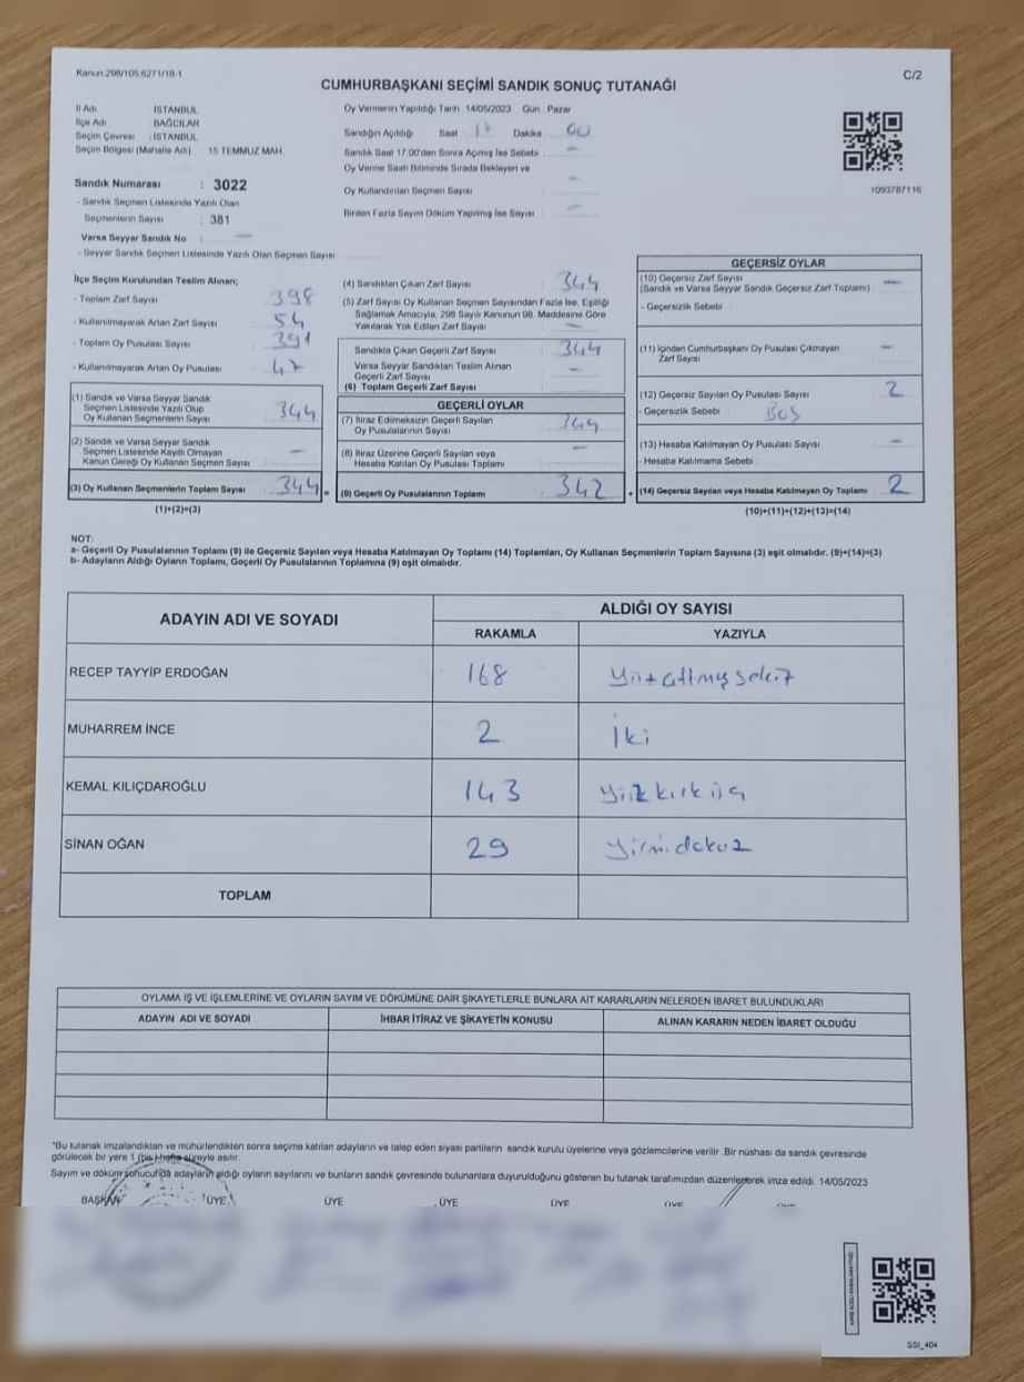 Kanun:298/105,6271/18-1
C/2
CUMHURBAŞKANI SEÇİMİ SANDIK SONUÇ TUTANAĞI
İl Adı İSTANBUL
İlçe Adı BAĞCILAR
Seçim Çevresi : İSTANBUL
Seçim Bölgesi (Mahalle Adı) 15 TEMMUZ MAH.
Sandık Numarası : 3022
- Sandık Seçmen Listesinde Yazılı Olan
Seçmenlerin Sayısı : 381
Varsa Seyyar Sandık No : —
- Seyyar Sandık Seçmen Listesinde Yazılı Olan Seçmen Sayısı
Oy Vermenin Yapıldığı Tarih 14/05/2023 Gün : Pazar
Sandığın Açıldığı Saat 17 Dakika 00
Sandık Saat 17.00'den Sonra Açılmış İse Sebebi —
Oy Verme Saati Bitiminde Sırada Bekleyen ve
Oy Kullandırılan Seçmen Sayısı —
Birden Fazla Sayım Döküm Yapılmış İse Sayısı —
1093787116
İlçe Seçim Kurulundan Teslim Alınan;
- Toplam Zarf Sayısı 398
- Kullanılmayarak Artan Zarf Sayısı 54
- Toplam Oy Pusulası Sayısı 391
- Kullanılmayarak Artan Oy Pusulası 47
(1) Sandık ve Varsa Seyyar Sandık
Seçmen Listesinde Yazılı Olup
Oy Kullanan Seçmenlerin Sayısı 344
(2) Sandık ve Varsa Seyyar Sandık
Seçmen Listesinde Kayıtlı Olmayan
Kanun Gereği Oy Kullanan Seçmen Sayısı —
(3) Oy Kullanan Seçmenlerin Toplam Sayısı 344
(1)+(2)=(3)
(4) Sandıktan Çıkan Zarf Sayısı 344
(5) Zarf Sayısı Oy Kullanan Seçmen Sayısından Fazla İse, Eşitliği
Sağlamak Amacıyla, 298 Sayılı Kanunun 98. Maddesine Göre
Yakılarak Yok Edilen Zarf Sayısı —
Sandıkta Çıkan Geçerli Zarf Sayısı 344
Varsa Seyyar Sandıktan Teslim Alınan
Geçerli Zarf Sayısı —
(6) Toplam Geçerli Zarf Sayısı
GEÇERLİ OYLAR
(7) İtiraz Edilmeksizin Geçerli Sayılan
Oy Pusulalarının Sayısı
(8) İtiraz Üzerine Geçerli Sayılan veya
Hesaba Katılan Oy Pusulası Toplamı —
= (9) Geçerli Oy Pusulalarının Toplamı 342 +
GEÇERSİZ OYLAR
(10) Geçersiz Zarf Sayısı
(Sandık ve Varsa Seyyar Sandık Geçersiz Zarf Toplamı) —
- Geçersizlik Sebebi
(11) İçinden Cumhurbaşkanı Oy Pusulası Çıkmayan
Zarf Sayısı —
(12) Geçersiz Sayılan Oy Pusulası Sayısı 2
- Geçersizlik Sebebi Boş
(13) Hesaba Katılmayan Oy Pusulası Sayısı —
- Hesaba Katılmama Sebebi
(14) Geçersiz Sayılan veya Hesaba Katılmayan Oy Toplamı 2
(10)+(11)+(12)+(13)=(14)
NOT:
a- Geçerli Oy Pusulalarının Toplamı (9) ile Geçersiz Sayılan veya Hesaba Katılmayan Oy Toplamı (14) Toplamları, Oy Kullanan Seçmenlerin Toplam Sayısına (3) eşit olmalıdır. (9)+(14)=(3)
b- Adayların Aldığı Oyların Toplamı, Geçerli Oy Pusulalarının Toplamına (9) eşit olmalıdır.
ADAYIN ADI VE SOYADI ALDIĞI OY SAYISI
RAKAMLA YAZIYLA
RECEP TAYYİP ERDOĞAN 168 Yüz altmış sekiz
MUHARREM İNCE 2 İki
KEMAL KILIÇDAROĞLU 143 Yüz kırk üç
SİNAN OĞAN 29 Yirmi dokuz
TOPLAM
OYLAMA İŞ VE İŞLEMLERİNE VE OYLARIN SAYIM VE DÖKÜMÜNE DAİR ŞİKAYETLERLE BUNLARA AİT KARARLARIN NELERDEN İBARET BULUNDUKLARI
ADAYIN ADI VE SOYADI İHBAR İTİRAZ VE ŞİKAYETİN KONUSU ALINAN KARARIN NEDEN İBARET OLDUĞU
*Bu tutanak imzalandıktan ve mühürlendikten sonra seçime katılan adayların ve talep eden siyasi partilerin sandık kurulu üyelerine veya gözlemcilerine verilir. Bir nüshası da sandık çevresinde
görülecek bir yere 1 (bir) hafta süreyle asılır.
Sayım ve döküm sonucunda adayların aldığı oyların sayılarını ve bunların sandık çevresinde bulunanlara duyurulduğunu gösteren bu tutanak tarafımızdan düzenlenerek imza edildi. 14/05/2023
BAŞKAN ÜYE ÜYE ÜYE ÜYE ÜYE ÜYE
SSİ_404